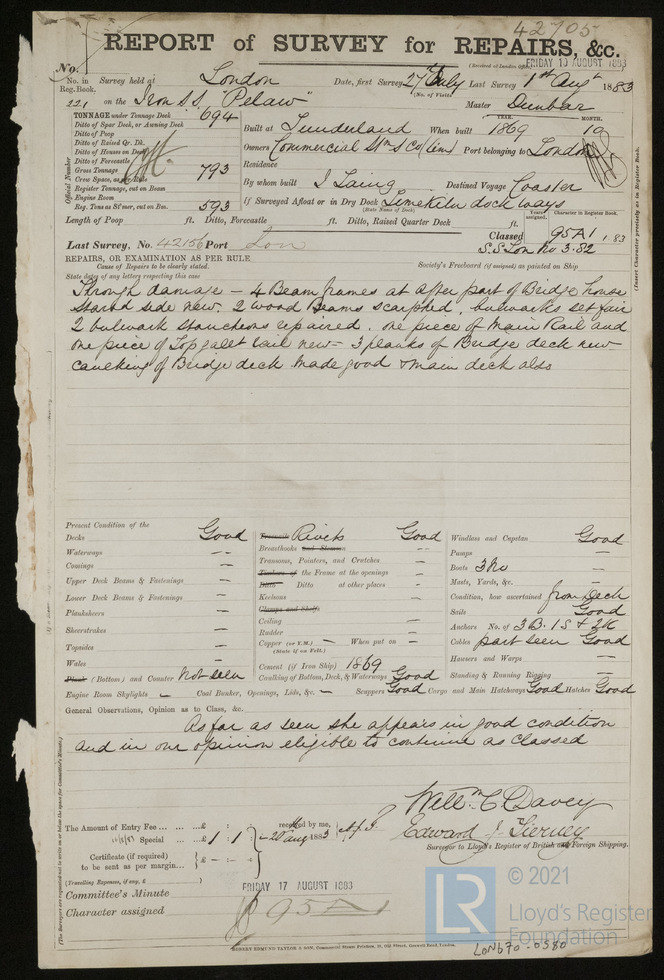 42705
REPORT of SURVEY for REPAIRS, &c.
(Received at London Office, FRIDAY 10 AUGUST 1883
No.
No. in Reg. Book. Survey held at London Date, first Survey 27 July Last Survey 1st Augt 1883
(No. of Visits)
221 on the Iron SS, "Pelaw" Master Dunbar
TONNAGE under Tonnage Deck 694
Ditto of Spar Deck, or Awning Deck
Ditto of Poop
Ditto of Raised Qr. Dk.
Ditto of Houses on Deck
Ditto of Forecastle
Gross Tonnage 793
Crew Space, as per Rule
Register Tonnage, cut on Beam
Engine Room
Reg. Tons as St'mer, cut on Bm. 593
Official Number
YEAR. MONTH.
Built at Sunderland When built 1869 10
Owners Commercial Stm S Co (Lim) Port belonging to London
Residence
By whom built J Laing Destined Voyage Coaster
If Surveyed Afloat or in Dry Dock Limekiln dock ways
(State Name of Dock)
Length of Poop ft. Ditto, Forecastle ft. Ditto, Raised Quarter Deck ft.
Years assigned. Character in Register Book.
Classed 95A1 1,83
S.S. Lon No 3.82
Last Survey, No. 42156 Port Lon
(Insert Character precisely as in Register Book.
REPAIRS, OR EXAMINATION AS PER RULE
Cause of Repairs to be clearly stated. Society's Freeboard (if assigned) as painted on Ship
State dates of any letters respecting this case
Through damage – 4 Beam frames at after part of Bridge house
starbd side new. 2 wood Beams scarphed, bulwarks set fair
2 bulwark stanchions repaired. One piece of Main Rail and
one piece of Topgalet rail new – 3 planks of Bridge deck new
caulking of Bridge deck made good & main deck also
Present Condition of the
Decks Good
Waterways
Comings
Upper Deck Beams & Fastenings
Lower Deck Beams & Fastenings
Planksheers
Sheerstrakes
Topsides
Wales
Plank (Bottom) and Counter Not seen
Engine Room Skylights – Coal Bunker, Openings, Lids, &c. – Scuppers Good Cargo and Main Hatchways Good Hatches Good
Treenails Rivets Good
Breasthooks and Stemson
Transoms, Pointers, and Crutches
Timbers of the Frame at the openings
Ditto Ditto at other places
Keelsons
Clamps and Shelfs
Ceiling
Rudder
Copper (or Y.M.) – When put on –
(State if on Felt.)
Cement (if Iron Ship) 1869
Caulking of Bottom, Deck, & Waterways Good
Windlass and Capstan Good
Pumps
Boats 3 No
Masts, Yards, &c.
Condition, how ascertained from Deck
Sails Good
Anchors No. of 3B. 1S & 2K
Cables part seen Good
Hawsers and Warps
Standing & Running Rigging
General Observations, Opinion as to Class, &c.
As far as seen she appears in good condition
and in our opinion eligible to continue as classed
Willm C Davey
Edward J Tierney
Surveyor to Lloyd's Register of British and Foreign Shipping.
The Amount of Entry Fee ... ... ...£ : : received by me,
Special ... ...£ 1 : 1 : 20 Aug 1883
Certificate (if required) to be sent as per margin...
(Travelling Expenses, if any, £ )
Committee's Minute FRIDAY 17 AUGUST 1883
Character assigned 95A1
ROBERT EDMUND TAYLOR & SON, Commercial Steam Printers, 19, Old Street, Goswell Road, London.
LR
© 2021
Lloyd's Register
Foundation
LON670-0380